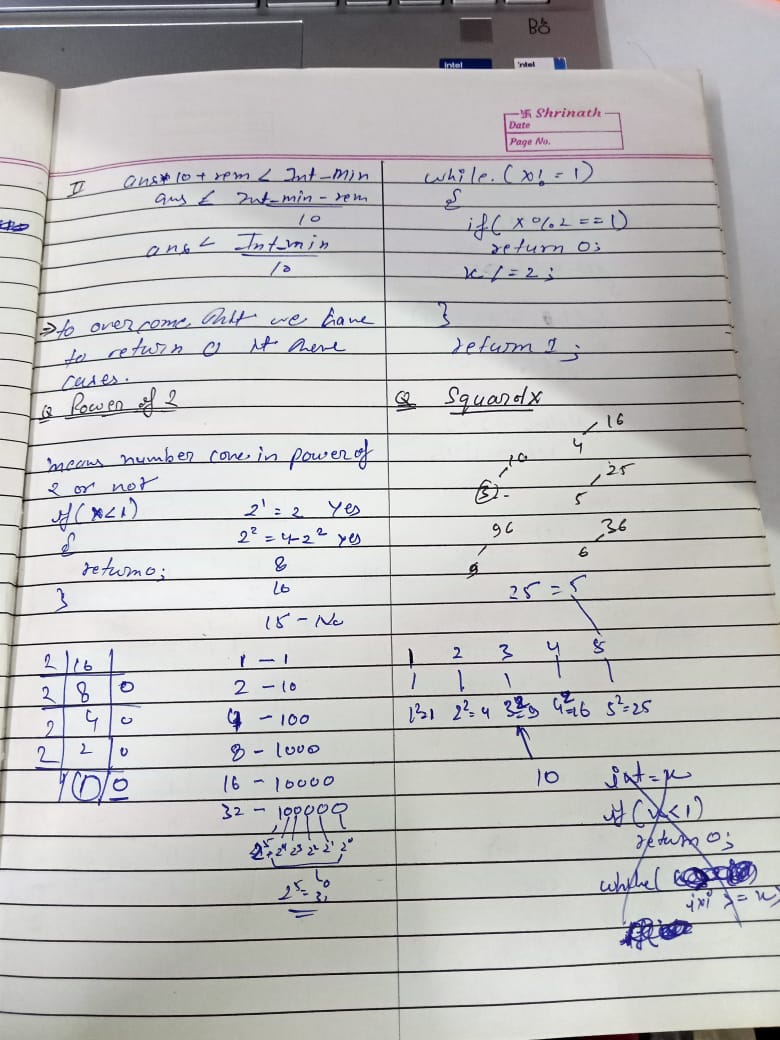 B6
intel
intel
卐 Shrinath
Date
Page No.
II ans*10+rem < Int-Min
ans < Int-min-rem
10
ans < Int-min
10
⇒ to overcome we have
to return 0 these
cases.
Q Power of 2
means number come in power of
2 or not
if(x<1)
{
return 0;
}
2¹ = 2 Yes
2² = 4 2² yes
8
16
15 - No
2 | 16
2 | 8 | 0
2 | 4 | 0
2 | 2 | 0
1 | 0
1 - 1
2 - 10
4 - 100
8 - 1000
16 - 10000
32 - 100000
2⁵ 2⁴ 2³ 2² 2¹ 2⁰
2⁵ =
while (x! = 1)
{
if( x%2 == 1)
return 0;
x /= 2;
}
return 1;
Q Squardx
16
4
10
3
25
5
96
9
36
6
25 = 5
1 2 3 4 5
1²=1 2²=4 3²=9 4²=16 5²=25
10
int = x
if (x<1)
return 0;
while(
i*i >= x)